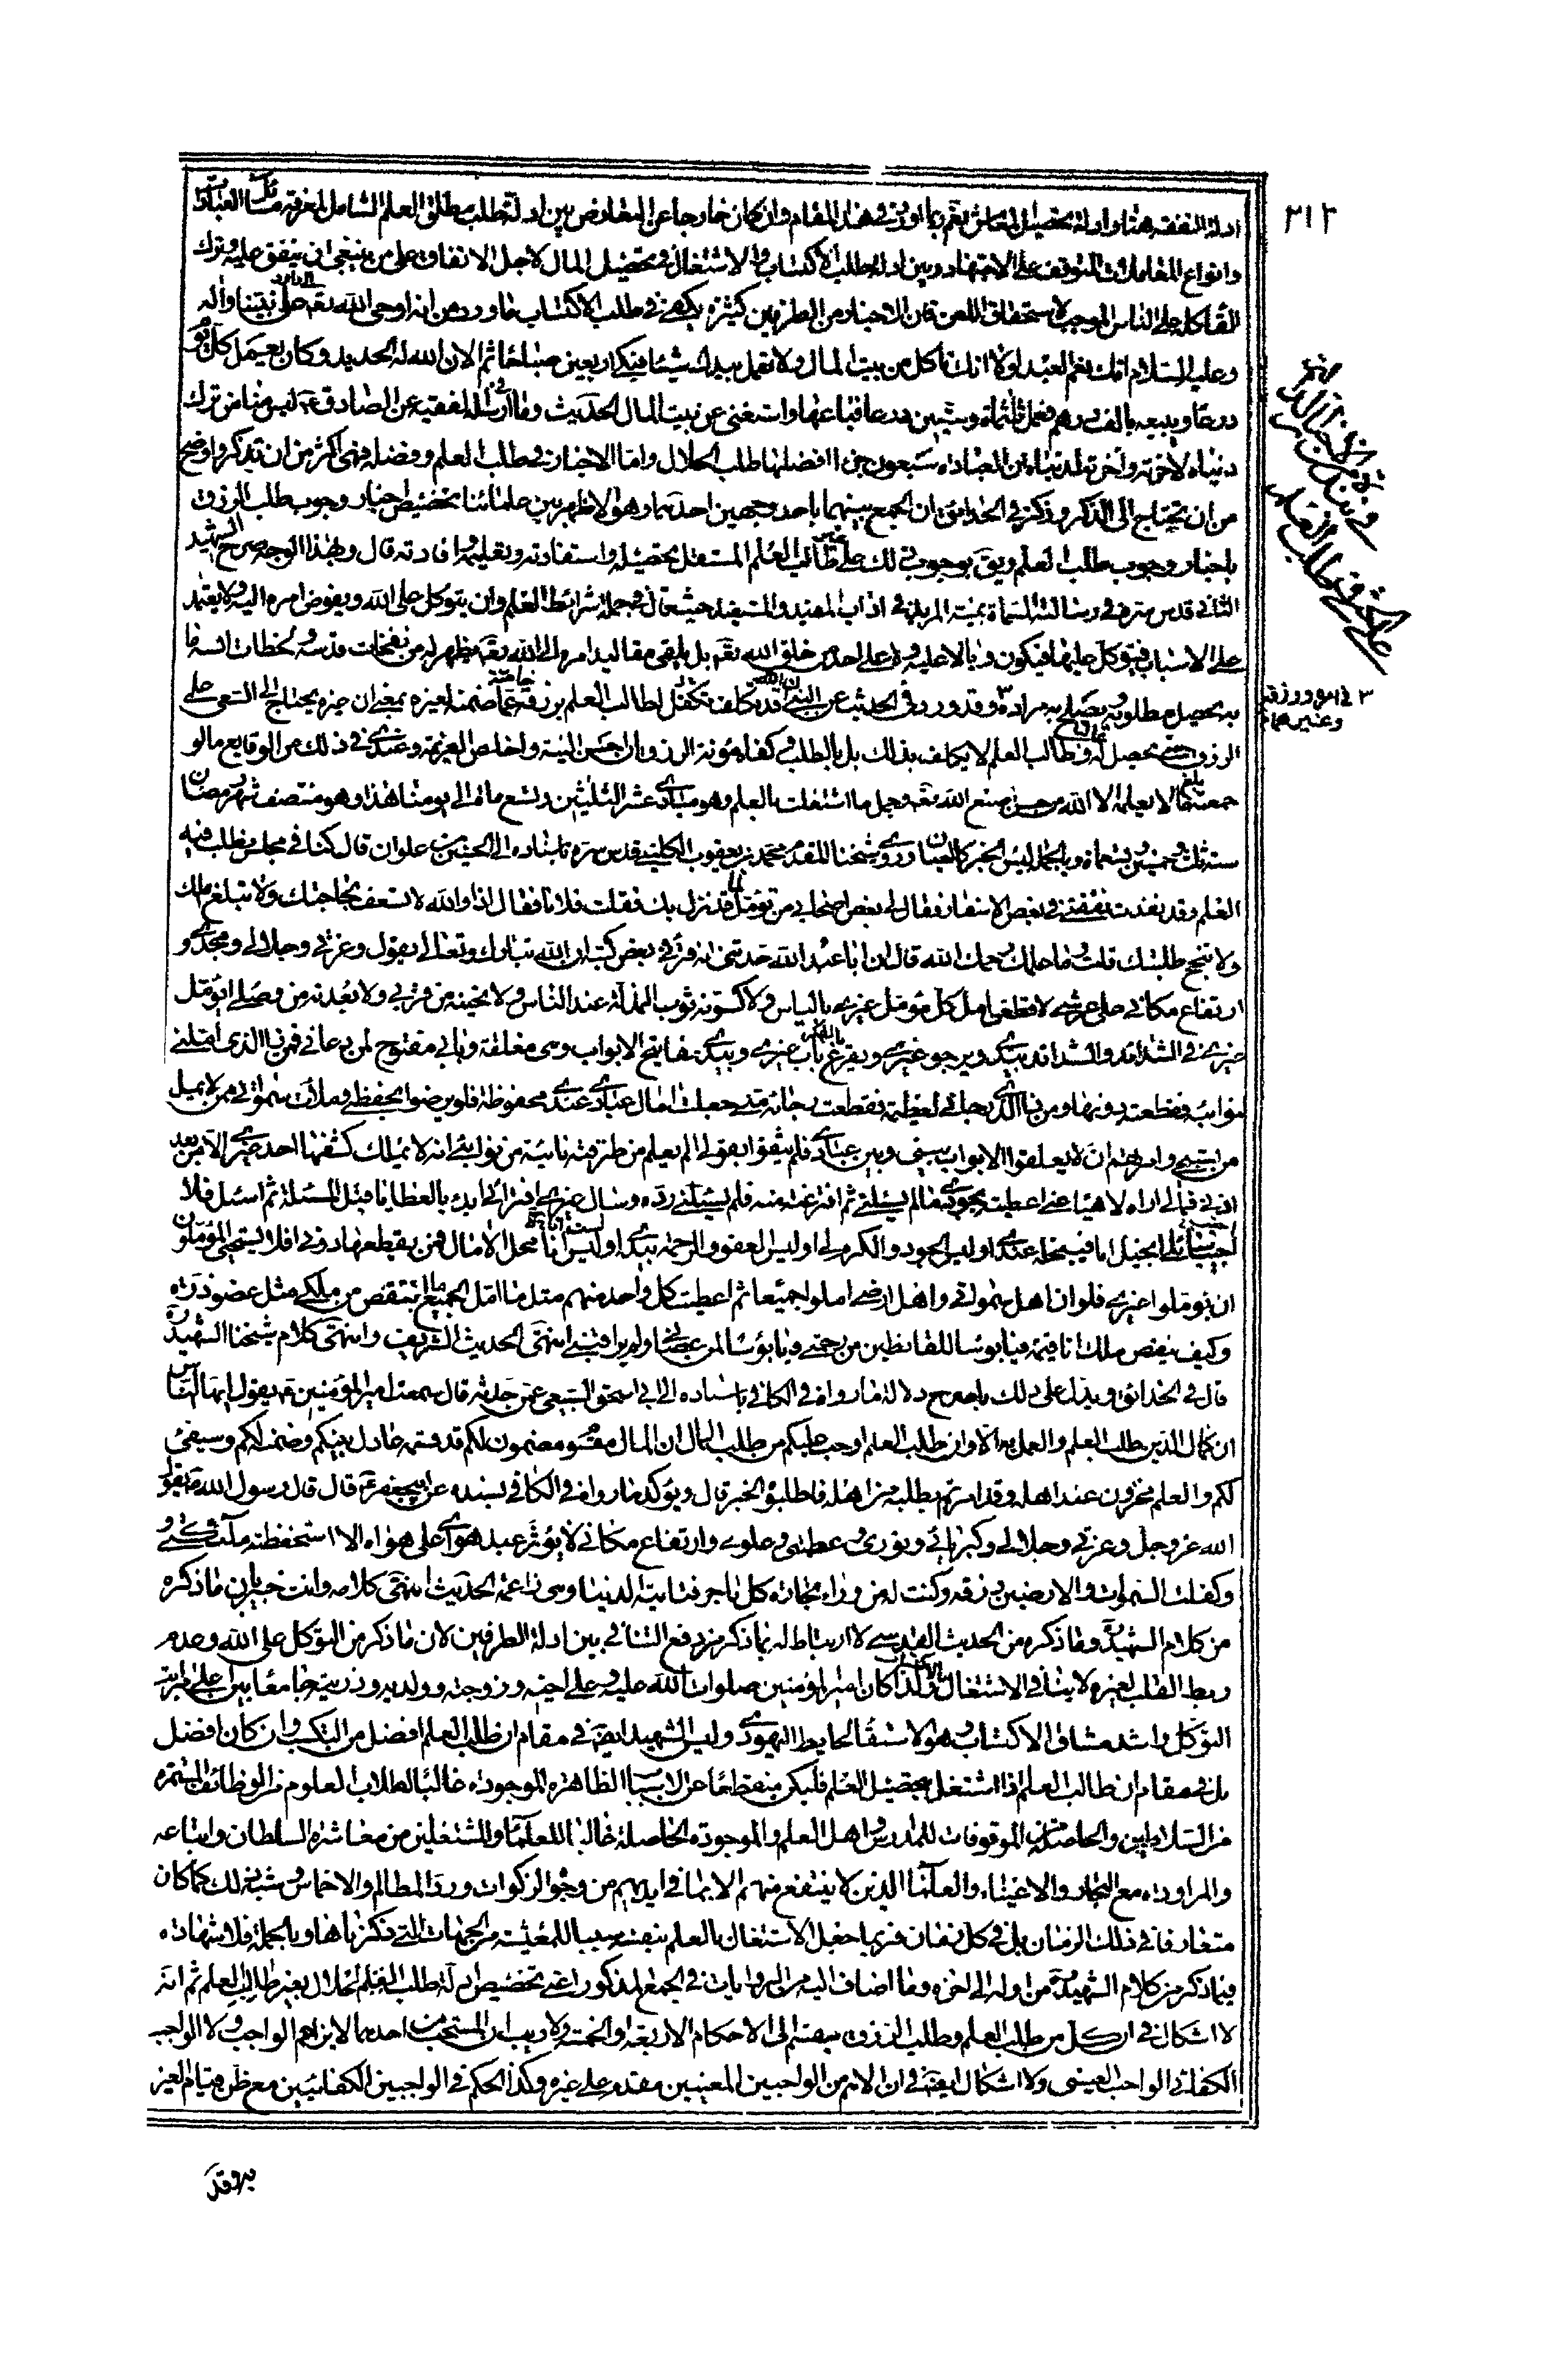 ٣١٢
ادلة التفقه هنا وادلة تحصيل المعاش نعم ربما اورد في هذا المقام وان كان خارجا عن التعارض بين ادلة طلب مطلق العلم الشامل لمعرفة مسائل العبادات
وانواع المعاملات المتوقف على الاجتهاد وبين ادلة طلب الاكتساب والاشتغال في تحصيل المال لاجل الانفاق على من ينبغي ان ينفق عليه وترك
القاء كله على الناس الموجب لاستحقاق اللعن فان الاخبار من الطرفين كثيرة يكفي في طلب الاكتساب ما ورد من انه اوحى الله تعالى الى داود على نبينا واله
وعليه السلام انك نعم العبد لولا انك تأكل من بيت المال ولا تعمل بيدك شيئا فبكى اربعين صباحا ثم الان الله له الحديد وكان يعمل كل يوم
درعا ويبيعه بالف درهم فعمل ثلثمائة وستين درعا فباعها واستغنى عن بيت المال الحديث وما ارسله في الفقيه عن الصادق ع ليس منا من ترك
دنياه لاخرته واخرته لدنياه وان العبادة سبعون جزءا افضلها طلب الحلال واما الاخبار في طلب العلم وفضله فهي اكثر من ان تذكر واوضح
من ان يحتاج الى الذكر وذكر في الحدائق ان الجمع بينهما باحد وجهين احدهما وهو الاظهر بين علمائنا تخصيص اخبار وجوب طلب الرزق
باخبار وجوب طلب العلم ويق بوجوب ذلك على غير طالب العلم المستقل بتحصيله واستفادته وتعليمه وافادته قال وبهذا الوجه صرح الشهيد
الثاني قدس سره في رسالته المسماة بمنية المريد في اداب المفيد والمستفيد حيث قال في جملة شرائط العلم وان يتوكل على الله ويفوض امره اليه ولا يعتمد
على الاسباب فيتوكل عليها فيكون وبالا عليه ولا على احد من خلق الله تعالى بل يلقي مقاليد امره الى الله تعالى يظهر له من نفحات قدسه ولحظات انسه ما
به يحصل مطلوبه ويصلح به مراده وقد ورد في الحديث عن النبي ص ان الله قد تكفل لطالب العلم برزقه خاصة عما ضمنه لغيره بمعنى ان غيره يحتاج الى السعي على
الرزق حتى يحصل له غالبا وطالب العلم لا يكلف بذلك بل بالطلب وكفاه مؤنة الرزق ان احسن النية واخلص العزيمة وعندي في ذلك من الوقايع ما لو
جمعته بلغ ما لا يعلمه الا الله من حسن صنع الله تعالى وجميل ما اشتغلت بالعلم وهو مبادى عشر الثلثين وتسعمائة الى يومنا هذا وهو منتصف شهر رمضان
سنة ثلث وخمسين وتسعمائة وبالجملة ليس الخبر كالعيان وروى شيخنا المقدم محمد بن يعقوب الكليني قدس سره باسناده الى الحسين بن علوان قال كنا في مجلس نطلب فيه
العلم وقد نفدت نفقتي في بعض الاسفار فقال لي بعض اصحابي من تؤمل لما قد نزل بك فقلت فلانا فقال اذا والله لا تسعف بحاجتك ولا تبلغ املك
ولا تنجح طلبتك قلت وما علمك رحمك الله قال ان ابا عبد الله حدثني انه قرء في بعض كتبه ان الله تبارك وتعالى يقول وعزتي وجلالي ومجدي و
ارتفاع مكاني على عرشي لاقطعن امل كل مؤمل غيري بالياس ولاكسونه ثوب المذلة عند الناس ولانحينه من قربي ولابعدنه من وصلي ايؤمل
غيري في الشدائد والشدائد بيدي ويرجو غيري ويقرع بالفكر باب غيري وبيدي مفاتيح الابواب وهي مغلقة وبابي مفتوح لمن دعاني فمن ذا الذي املني
لنوائبه فقطعته دونها ومن ذا الذي رجاني لعظيمة فقطعت رجائه مني جعلت امال عبادي عندي محفوظة فلم يرضوا بحفظي وملات سمواتي ممن لا يمل
من تسبيحي وامرتهم ان لا يغلقوا الابواب بيني وبين عبادي فلم يثقوا بقولي الم يعلم من طرقته نائبة من نوائبي انه لا يملك كشفها احد غيري الا من بعد
اذني فما لي اراه لاهيا عني اعطيته بجودي ما لم يسئلني ثم انتزعته منه فلم يسئلني رده وسال غيري افتراني ابدء بالعطايا قبل المسئلة ثم اسئل فلا
اجيب سائلي ابخيل انا فيبخلني عبدي اوليس الجود والكرم لي اوليس العفو والرحمة بيدي اوليس انا محل الامال فمن يقطعها دوني افلا يستحيي المؤملون
ان يؤملوا غيري فلو ان اهل سمواتي واهل ارضي املوا جميعا ثم اعطيت كل واحد منهم مثل ما امل الجميع ما انتقص من ملكي مثل عضو ذرة
وكيف ينقص ملك انا قيمه فيا بوسا للقانطين من رحمتي ويا بؤسا لمن عصاني ولم يراقبني انتهى الحديث الشريف وانتهى كلام شيخنا الشهيد
قال في الحدائق ويدل على ذلك باصرح دلالة ما رواه في الكافي باسناده الى ابي اسحق السبيعي عمن حدثه قال سمعت امير المؤمنين ع يقول ايها الناس
ان كمال الدين طلب العلم والعمل به الا وان طلب العلم اوجب عليكم من طلب المال ان المال مقسوم مضمون لكم قد قسمه عادل بينكم وضمنه لكم وسيفي
لكم والعلم مخزون عند اهله وقد امرتم بطلبه من اهله فاطلبوه الخبر قال ويؤكده ما رواه في الكافي بسنده عن ابي جعفر ع قال قال رسول الله ص يقول
الله عز وجل وعزتي وجلالي وكبريائي ونوري وعظمتي وعلوي وارتفاع مكاني لا يؤثر عبد هواي على هواه الا استحفظته ملائكتي و
وكفلت السموات والارضين رزقه وكنت له من وراء تجارة كل تاجر وتاتيه الدنيا وهي راغمة الحديث انتهى كلامه وانت خبير بان ما ذكره
من كلام الشهيد وما ذكره من الحديث القدسي لا ارتباط له بما ذكر من دفع التنافي بين ادلة الطرفين لان ما ذكر من التوكل على الله وعدم
ربط القلب لغيره لا ينافي الاشتغال ولذا كان امير المؤمنين صلوات الله عليه وعلى اخيه وزوجته وولديه وذريته جامعا بين اعلى مراتب
التوكل واشد مشاق الاكتساب وهو الاستقاء لحايط اليهودي وليس الشهيد ايضا في مقام ان طلب العلم افضل من التكسب وان كان افضل
بل في مقام ان طالب العلم اذا اشتغل بتحصيل العلم فليكن منقطعا عن الاسباب الظاهرة الموجودة غالبا لطلاب العلوم من الوظائف المستمرة
من السلاطين والحاصلة من الموقوفات للمدارس واهل العلم والموجودة الحاصلة غالبا للعلماء والمشتغلين من معاشرة السلطان واتباعه
والمراودة مع التجار والاغنياء والعلماء الذين لا ينتفع منهم الا بما في ايديهم من وجوه الزكوات ورد المظالم والاخماس وشبه ذلك كما كان
متعارفا في ذلك الزمان بل في كل زمان فربما جعل الاشتغال بالعلم بنفسه سببا للمعيشة من الجهات التي ذكرناها وبالجملة فلا شهادة
فيما ذكر من كلام الشهيد من اوله الى اخره وما اضاف اليه من الروايات في الجمع المذكور اعني تخصيص ادلة طلب الحلال بغير طالب العلم ثم انه
لا اشكال في ان كل من طلب العلم وطلب الرزق ينقسم الى الاحكام الاربعة او الخمسة ولا ريب ان المستحب من احدهما لا يزاحم الواجب ولا الواجب
الكفائي الواجب العيني ولا اشكال ايضا في ان الاهم من الواجبين المعينين مقدم على غيره وكذا الحكم في الواجبين الكفائيين مع ظن قيام الغير
به وقد